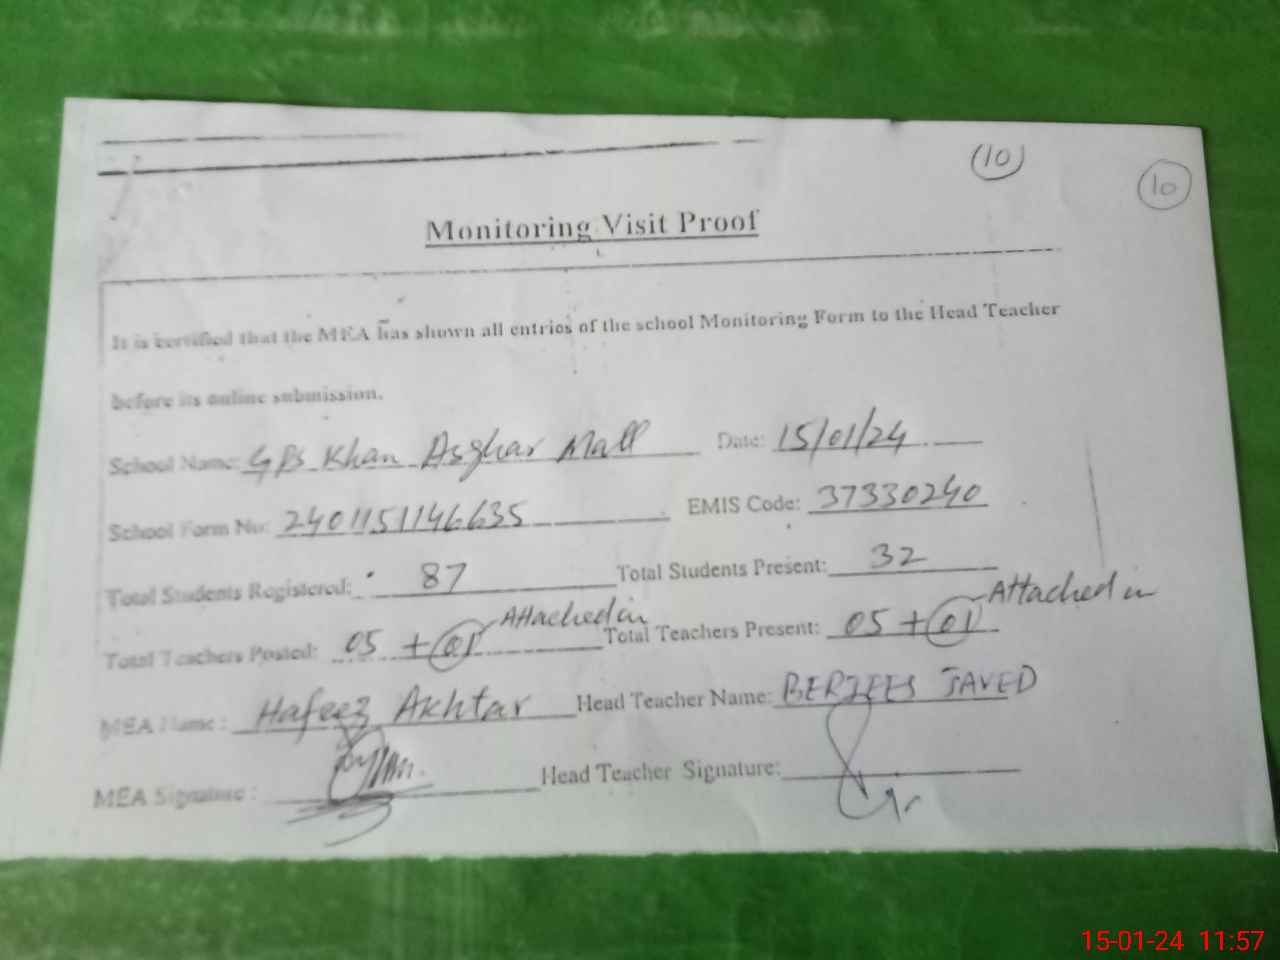 (10)
10
Monitoring Visit Proof
It is certified that the MEA has shown all entries of the school Monitoring Form to the Head Teacher
before its online submission.
School Name: GPS Khan Asghar Mall Date: 15/01/24
School Form No: 2401151146635 EMIS Code: 37330240
Total Students Registered: 87 Total Students Present: 32
Total Teachers Posted: 05 + 01 Attached in Total Teachers Present: 05 + 01 Attached in
MEA Name: Hafeez Akhtar Head Teacher Name: BERJEES JAVED
MEA Signature: Head Teacher Signature:
15-01-24 11:57